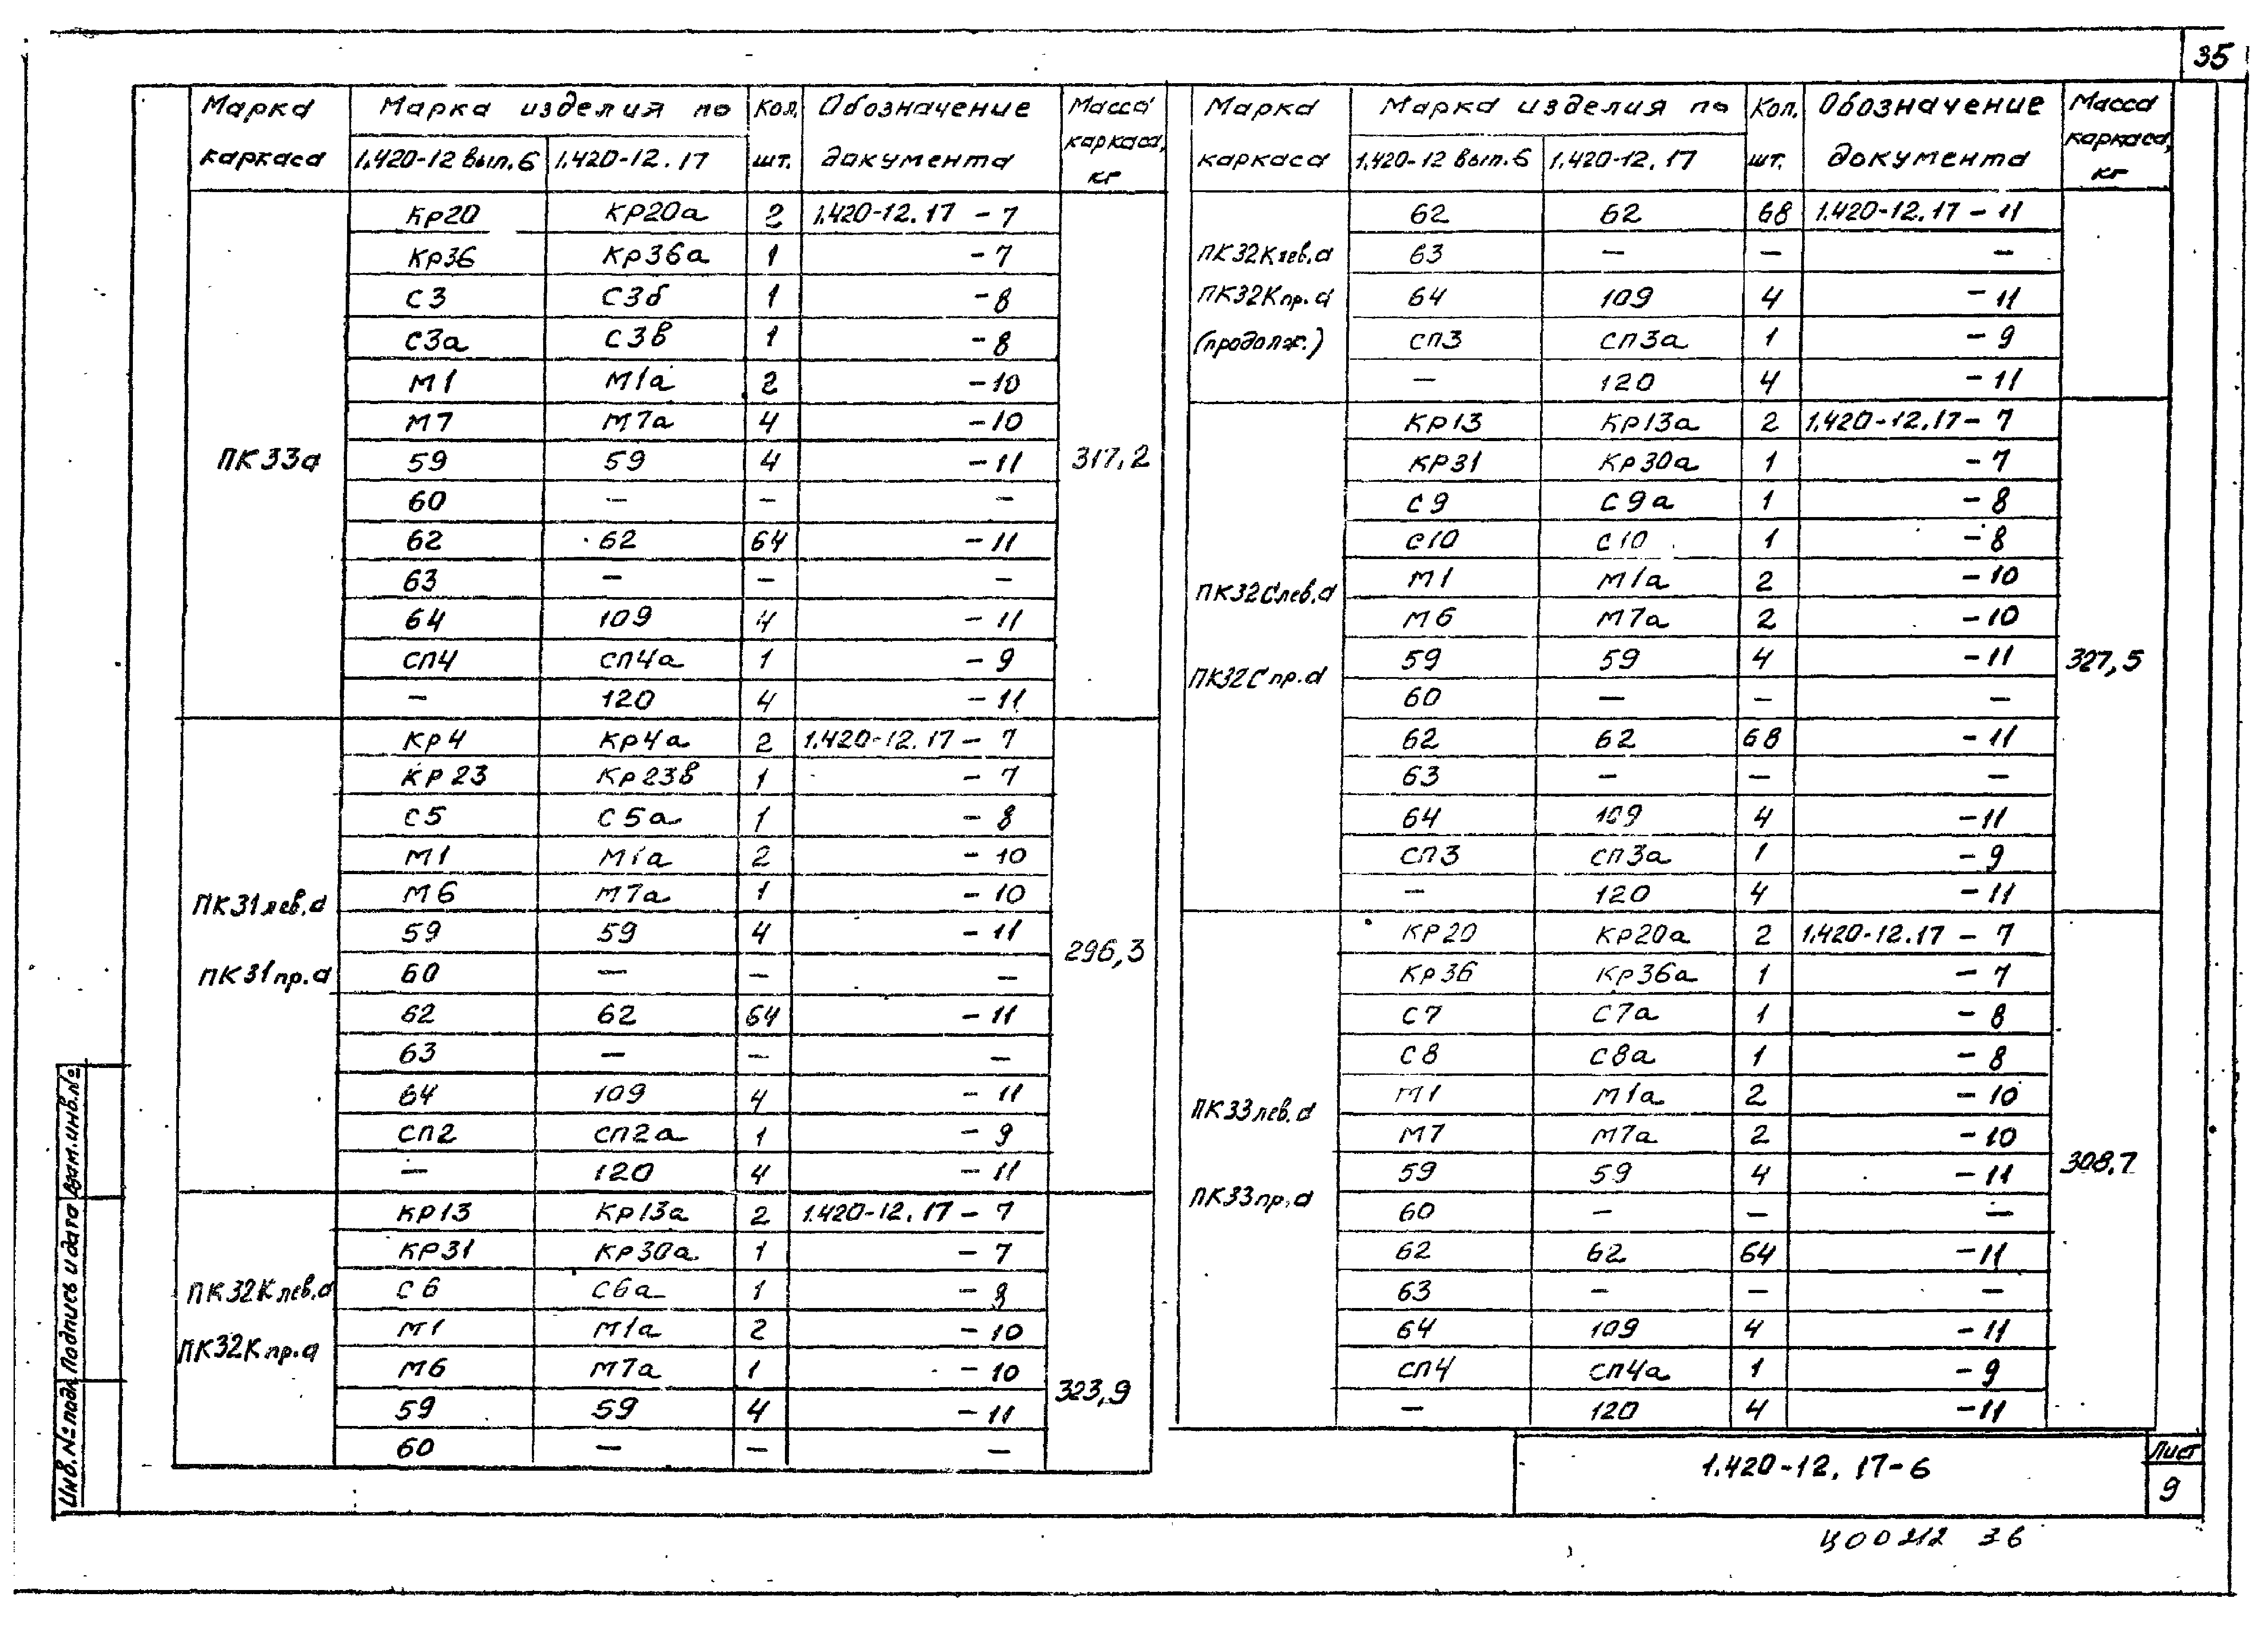 35
Марка каркаса | Марка изделия по | Кол. шт. | Обозначение документа | Масса каркаса, кг
1.420-12 вып.6 | 1.420-12.17
Кр20 | Кр20а | 2 | 1.420-12.17 - 7
Кр36 | Кр36а | 1 | - 7
С3 | С3б | 1 | - 8
С3а | С3в | 1 | - 8
М1 | М1а | 2 | - 10
М7 | М7а | 4 | - 10
ПК33а | 59 | 59 | 4 | - 11 | 317,2
60 | — | — | —
62 | 62 | 64 | - 11
63 | — | — | —
64 | 109 | 4 | - 11
СП4 | СП4а | 1 | - 9
— | 120 | 4 | - 11
Кр4 | Кр4а | 2 | 1.420-12.17 - 7
Кр23 | Кр23в | 1 | - 7
С5 | С5а | 1 | - 8
М1 | М1а | 2 | - 10
ПК31лев.а | М6 | М7а | 1 | - 10
59 | 59 | 4 | - 11 | 296,3
ПК31пр.а | 60 | — | — | —
62 | 62 | 64 | - 11
63 | — | — | —
64 | 109 | 4 | - 11
СП2 | СП2а | 1 | - 9
— | 120 | 4 | - 11
Кр13 | Кр13а | 2 | 1.420-12.17 - 7
Кр31 | Кр30а | 1 | - 7
ПК32Клев.а | С6 | С6а | 1 | - 8
ПК32Кпр.а | М1 | М1а | 2 | - 10
М6 | М7а | 1 | - 10 | 323,9
59 | 59 | 4 | - 11
60 | — | — | —
Марка каркаса | Марка изделия по | Кол. шт. | Обозначение документа | Масса каркаса, кг
1.420-12 вып.6 | 1.420-12.17
62 | 62 | 68 | 1.420-12.17 - 11
ПК32Клев.а | 63 | — | — | —
ПК32Кпр.а | 64 | 109 | 4 | - 11
(продолж.) | СП3 | СП3а | 1 | - 9
— | 120 | 4 | - 11
Кр13 | Кр13а | 2 | 1.420-12.17 - 7
Кр31 | Кр30а | 1 | - 7
С9 | С9а | 1 | - 8
С10 | С10 | 1 | - 8
ПК32Слев.а | М1 | М1а | 2 | - 10
М6 | М7а | 2 | - 10
ПК32Спр.а | 59 | 59 | 4 | - 11 | 327,5
60 | — | — | —
62 | 62 | 68 | - 11
63 | — | — | —
64 | 109 | 4 | - 11
СП3 | СП3а | 1 | - 9
— | 120 | 4 | - 11
Кр20 | Кр20а | 2 | 1.420-12.17 - 7
Кр36 | Кр36а | 1 | - 7
С7 | С7а | 1 | - 8
С8 | С8а | 1 | - 8
ПК33лев.а | М1 | М1а | 2 | - 10
М7 | М7а | 2 | - 10
59 | 59 | 4 | - 11 | 308,7
ПК33пр.а | 60 | — | — | —
62 | 62 | 64 | - 11
63 | — | — | —
64 | 109 | 4 | - 11
СП4 | СП4а | 1 | - 9
— | 120 | 4 | - 11
1.420-12.17-6
Лист
9
Ц00212 36
Инв.№подл. Подпись и дата Взам.инв.№